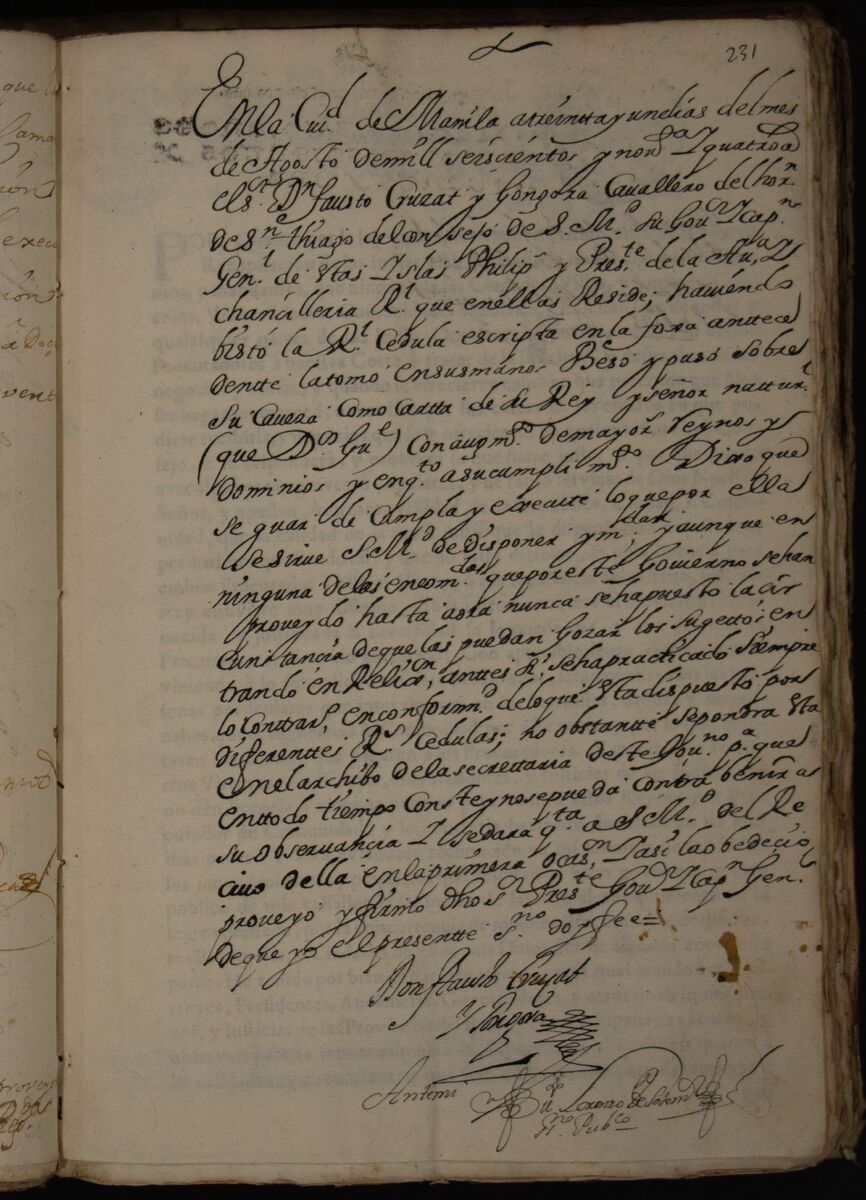 231
En la Ciu.d de Manila a treinta y un dias del mes
de Agosto de mill seiscientos y nov.a Y quatro a
el s.r D.n fausto Cruzat y Gongora Cavallero del hor.n
de S.n thiago del con sejo de S. M.d su Gov.r Y cap.n
Gen.l de Vtas Yslas Philip.s y Pres.te de la Au.a Y
chancilleria R.l que en ellas Reside; haviendo
bisto la R.l Cedula escripta en la foxa anttece
dentte la tomo en sus manos Beso y puso sobre
su Caveza como cartta de su Rey y señor nattur.l
(que D.s Gu.e) Con augm.to de mayor.s reynos y
dominios y en q.to a su cumplim.to Dixo que
se guar de Cumpla y execute lo que por ella
se sirve S. M.d de disponer y m.dar; y aunque en
ninguna de las encom.das que por este Govierno se han
proveydo hasta aora nunca se ha puesto la cir
cunstancia de que las puedan Gozar los sugettos en
trando en Relig.on, anttes si, se ha practicado siempre
lo contrar.o, en conform.d de lo que Vta dispuesto por
diferenttes R.s Cedulas; no obstantte se pondra Vta
en el archibo de la secrettaria deste Gov.no p.a que
en ttodo tiempo Conste y no se pueda contrabenir a
su observancia Y se dara q.ta a S M.d del Re
civo della en la primera ocas.on, Y asi lo obedecio,
proveyo y firmo dho s.r Pres.te Gov.r Y Cap.n Gen.l
de que yo el presentte s.no doy fee=
Don fausto Cruzat
y Gongora
Antemi
S.no Pub.co